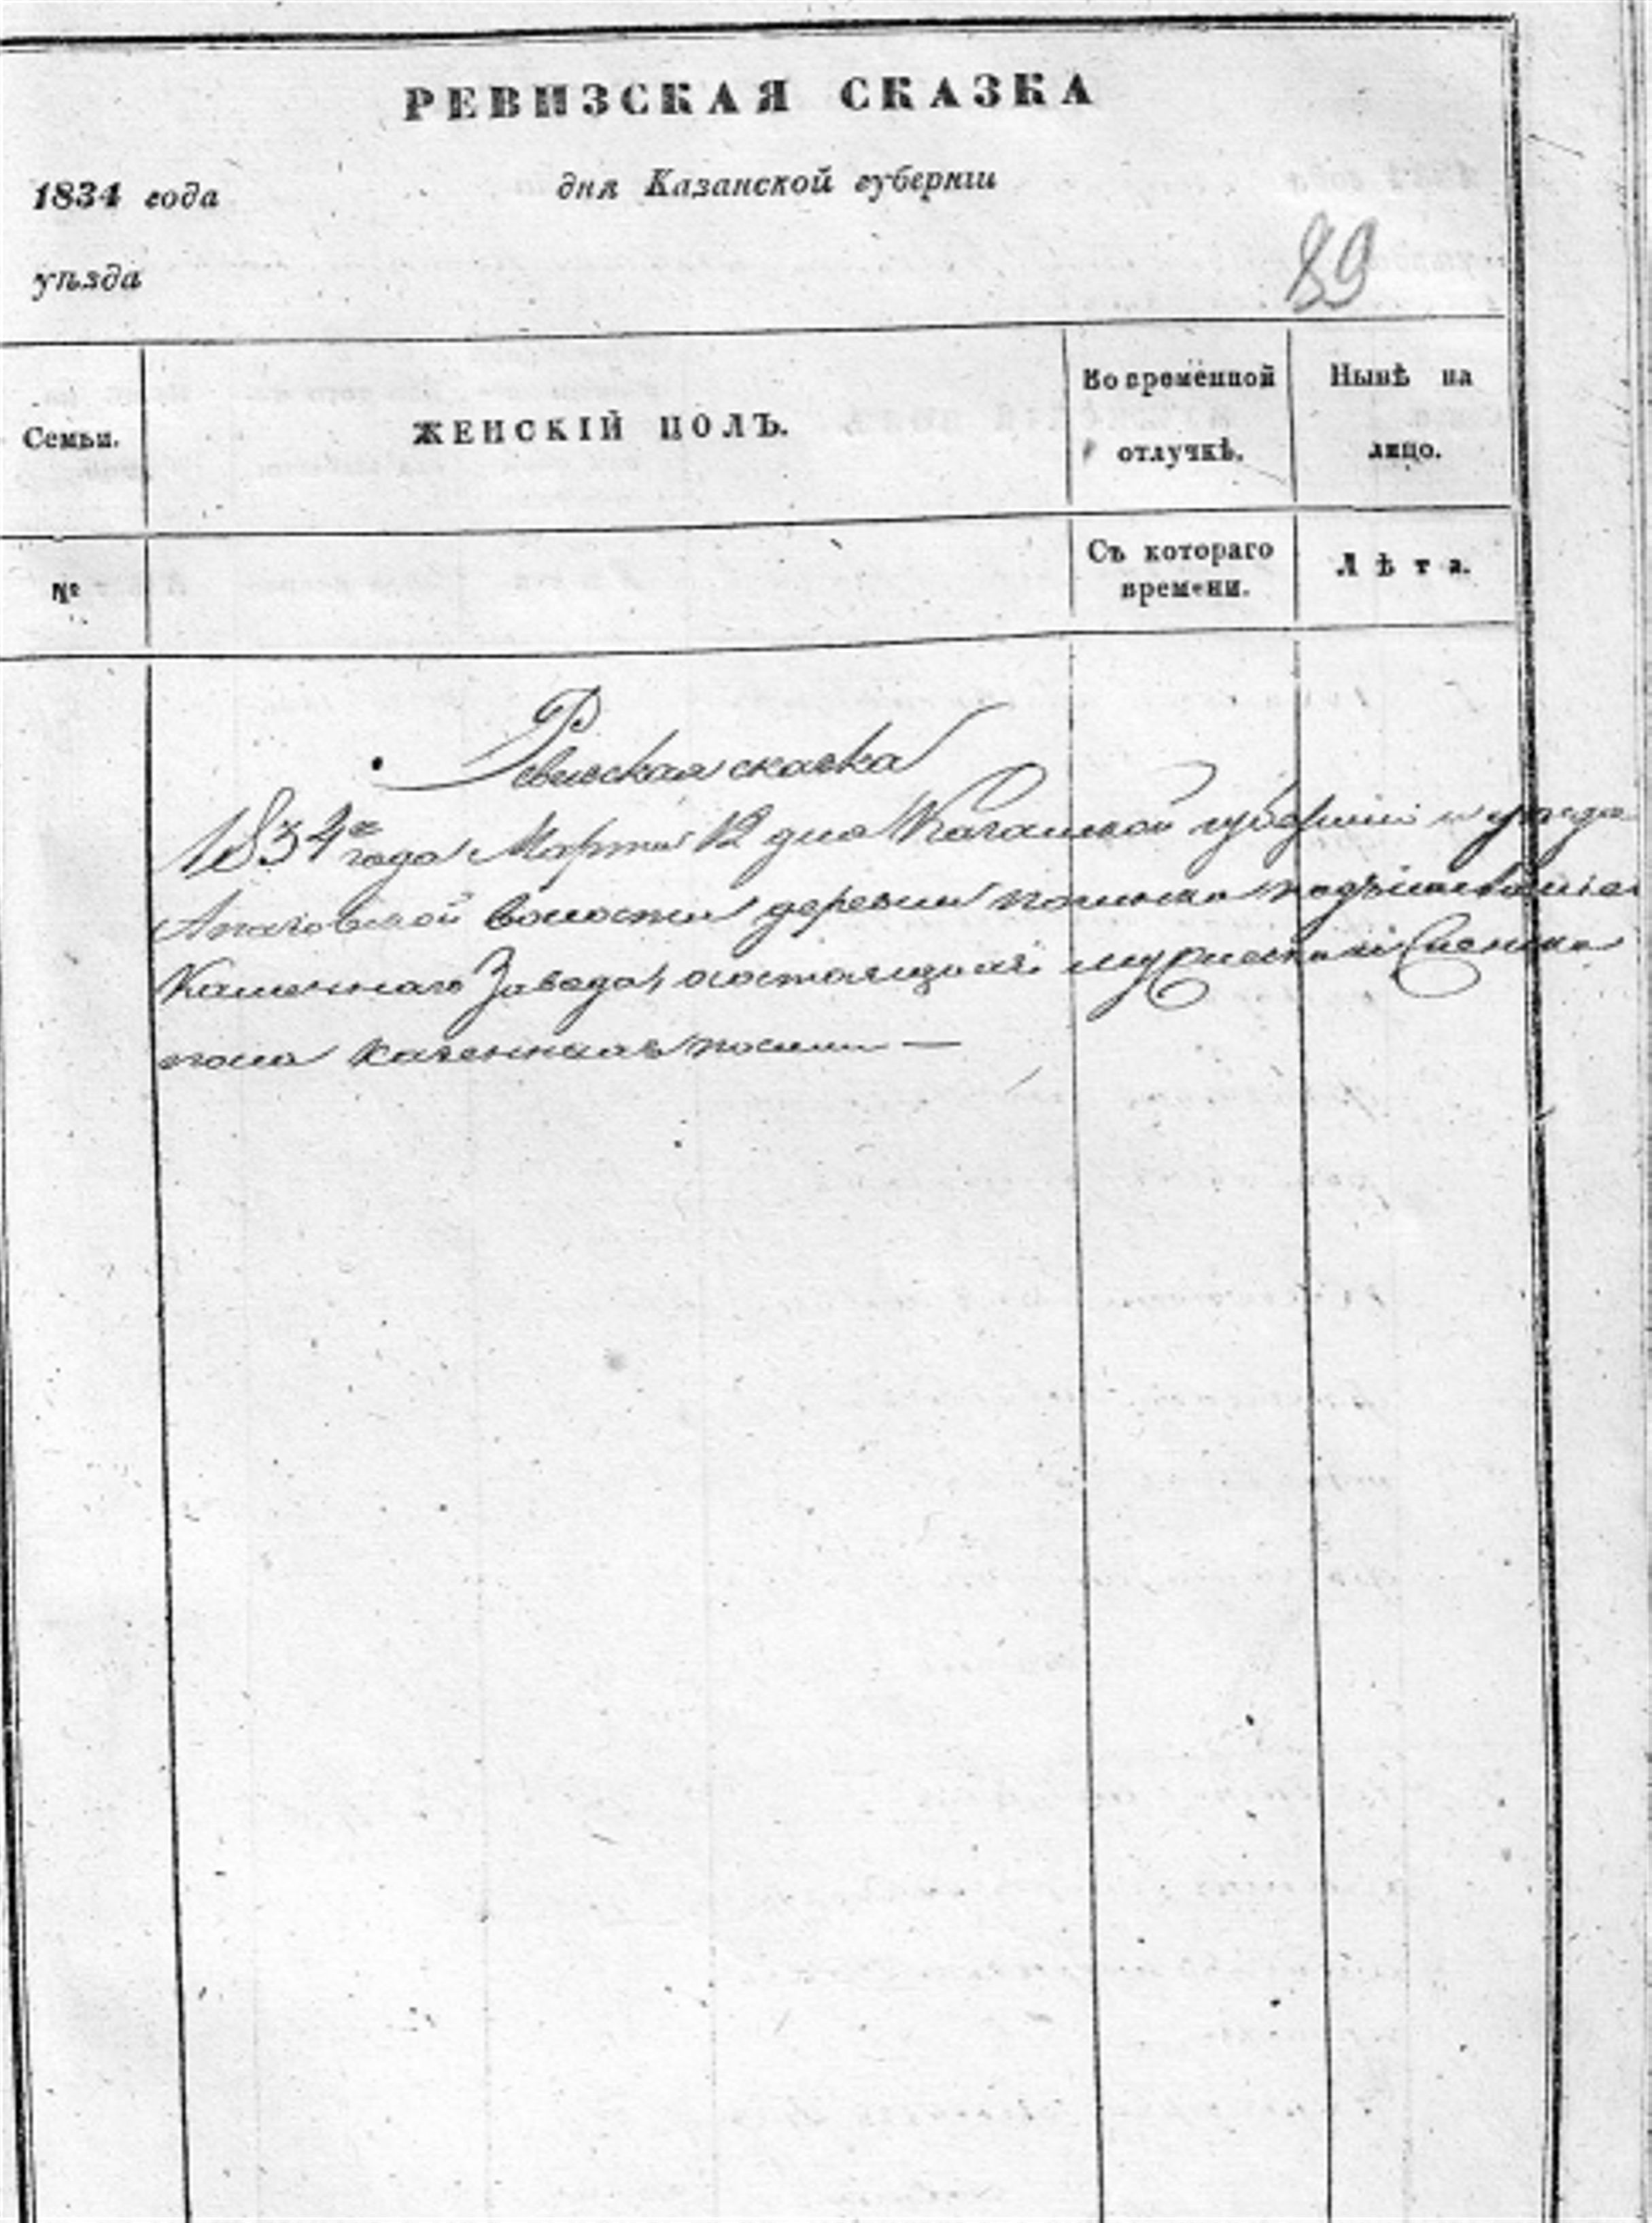 РЕВИЗСКАЯ СКАЗКА
1834 года дня Казанской губерніи
уѣзда
89
Семьи. ЖЕНСКІЙ ПОЛЪ. Во временной отлучкѣ. Нынѣ на лицо.
№ Съ котораго времени. Лѣта.
Ревиская сказка
1834го года Марта 12 дня Казанской губерніи и уезда
волости деревни
Каменнаго Завода, о состоящихъ мужеска и
пола казенныхъ